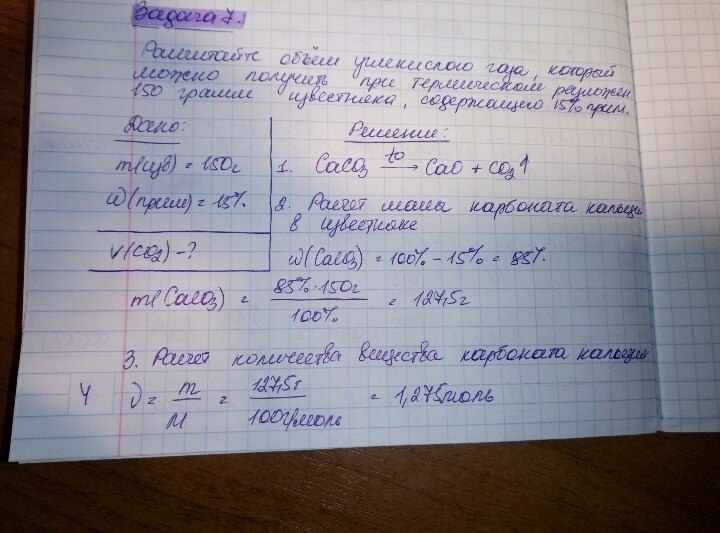 Задача 7.
Рассчитайте объём углекислого газа, который
можно получить при термическом разложен
150 грамм известняка, содержащего 15% прим.
Дано:
m(изв) = 150г
ω(прим) = 15%
V(CO2) - ?
Решение:
1. CaCO3 to→ CaO + CO2↑
2. Расчет массы карбоната кальци
в известняке
ω(CaCO3) = 100% - 15% = 85%.
m(CaCO3) = 85%·150г / 100% = 127,5г
3. Расчет количества вещества карбоната кальция
ν = m / M = 127,5г / 100г/моль = 1,275моль